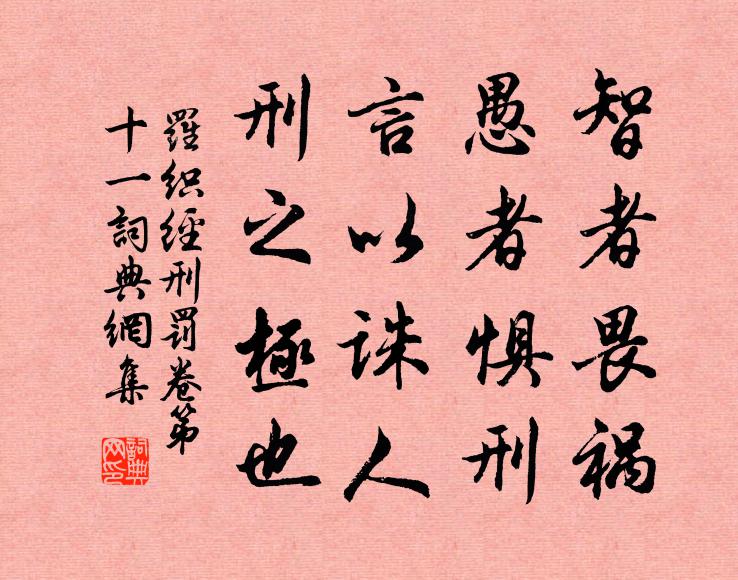 智者畏禍
愚者懼刑
言以誅人
刑之極也
羅织經刑罰卷第
十一詞典網集
詞典
网印